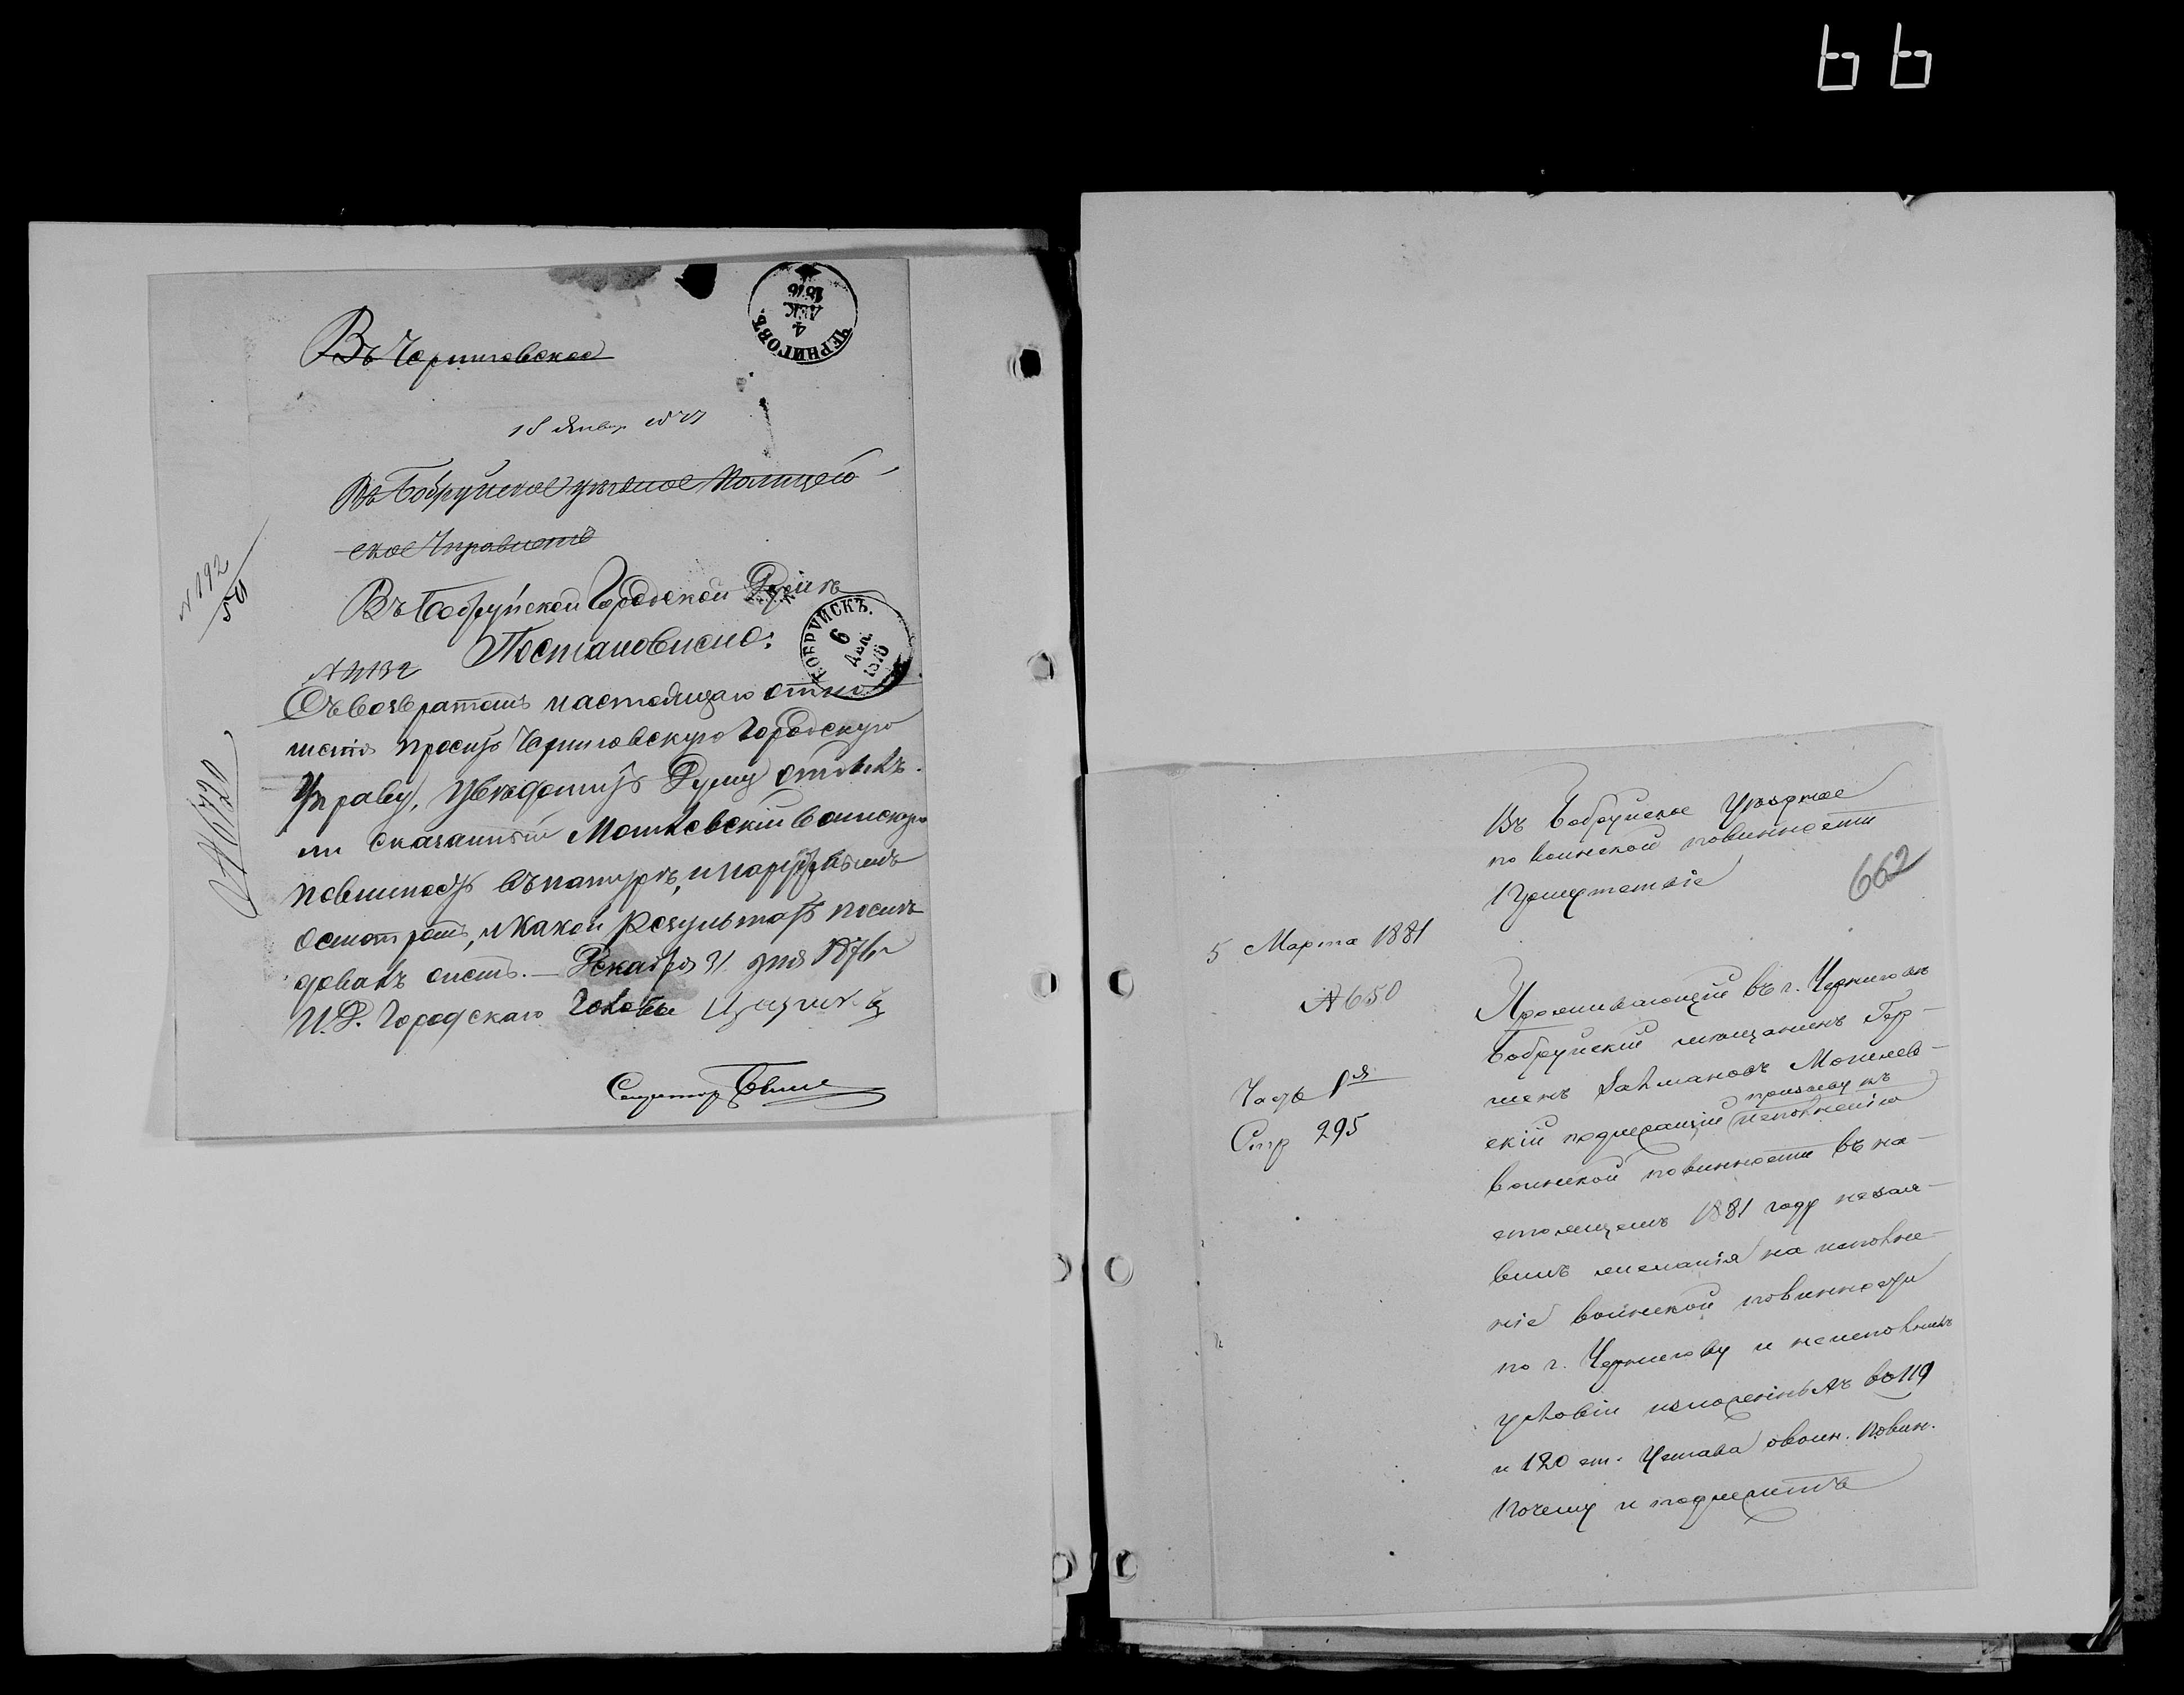 66
ЧЕРНИГОВЪ.
4
ДЕК
1876
Въ Черниговское
18 Январ 1877
Въ Бобруйское уѣздное Полицей-
ское Управленіе
Въ Бобруйской Городской Думѣ
Постановлено:
БОБРУЙСКЪ.
6
ДЕК.
1876
№ 192
50
№ 4132
№ 6720
Съ возвратомъ настоящаго отно-
шенія просить Черниговскую Городскую
Управу, увѣдомить Думу отбылъ
ли сказанный Мошковскій воинскую
повинность въ натурѣ, и наружнымъ
осмотромъ, и какой результатъ послѣ-
довалъ о немъ. — Декабря 31 дня 1876 г
И. Д. Городскаго Головы
Секретарь
Въ Бобруйское Уѣздное
по воинской повинности
Присутствіе
662
5 Марта 1881
№ 650
Часть 1я
Стр 295
Проживающій въ г. Черниговѣ
Бобруйскій мѣщанинъ Гер-
шенъ Залмановъ Могилев-
скій подлежащій призыву къ
исполненію
воинской повинности въ на-
стоящемъ 1881 году незая-
вилъ желанія на исполне-
ніе воинской повинности
по г. Чернигову и неисполнилъ
условій изложенныхъ въ 119
и 120 ст. Устава о воин. повин.
почему и подлежитъ